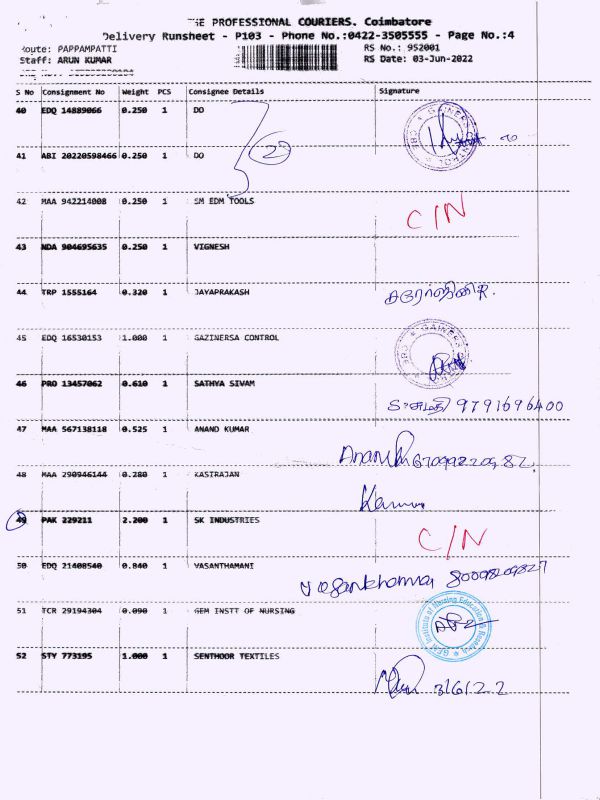 THE PROFESSIONAL COURIERS. Coimbatore
Delivery Runsheet - P103 - Phone No.:0422-3505555 - Page No.:4
Route: PAPPAMPATTI RS No.: 952001
Staff: ARUN KUMAR RS Date: 03-Jun-2022
S No Consignment No Weight PCS Consignee Details Signature
40 EDQ 14889066 0.250 1 DO
GAINERS CONTROL CBO
41 ABI 20220598466 0.250 1 DO
42 MAA 942214008 0.250 1 SM EDM TOOLS
C/N
43 NDA 904695635 0.250 1 VIGNESH
44 TRP 1555164 0.320 1 JAYAPRAKASH
45 EDQ 16530153 1.000 1 GAZINERSA CONTROL
GAINERS
46 PRO 13457062 0.610 1 SATHYA SIVAM
9791696400
47 MAA 567138118 0.525 1 ANAND KUMAR
48 MAA 290946144 0.280 1 KASTRAJAN
49 PAK 229211 2.200 1 SK INDUSTRIES
C/N
50 EDQ 21408540 0.840 1 VASANTHAMANI
51 TCR 29194304 0.090 1 GEM INSTT OF NURSING
GEM Institute of Nursing Education & Research
52 STY 773195 1.000 1 SENTHOOR TEXTILES
3/6/22